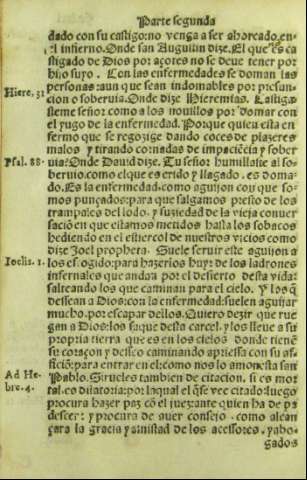 Parte segunda
dado con su castigo: no venga a ser ahorcado en
el infierno. Onde san Augustin dize. El que es ca
stigado de Dios por açotes no se deue tener por
hijo suyo. Con las enfermedades se doman las
Hiere. 31
personas: aun que sean indomables por presun-
cion o soberuia. Onde dize Hieremias. Castiga
steme señor: como a los nouillos por domar con
el yugo de la enfermedad. Porque quien esta en
fermo que se regozige dando coces de plazeres
malos y tirando cornadas de impaciēcia y sober
Psal. 88.
uia? Onde Dauid dize. Tu señor humillaste al so-
beruio: como el que es erido y llagado, es doma-
do. Es la enfermedad: como aguijon con que so-
mos punçados: para que salgamos presto de los
trampales del lodo, y suziedad de la vieja conuer
saciō en que estamos metidos hasta los sobacos
hediendo en el estiercol de nuestros vicios como
Joelis. 1.
dize Joel propheta. Suele seruir este aguijon a
los escogidos: para hazerlos huyr de los ladrones
infernales que andan por el desierto desta vida:
salteando los que caminan para el cielo. Y los q̄
dessean a Dios: con la enfermedad: suelen aguijar
mucho: por escapar dellos. Quiero dezir que rue
gan a Dios: los saque desta carcel, y los lleue a su
propria tierra que es en los cielos donde tienē
su coraçon y desseo caminando apriessa con su af-
fictiō: para entrar en el: como nos lo amonesta san
Ad He-
bre. 4.
Pablo. Sirueles tambien de citacion, si es mor
tal, es dilatoria: por la qual el q̄ se vee citado: luego
procura hazer paz cō el juez: ante quien ha de pa
descer: y procura de auer consejo, como alcan
çara la gracia y amistad de los acessores, y abo-
gados